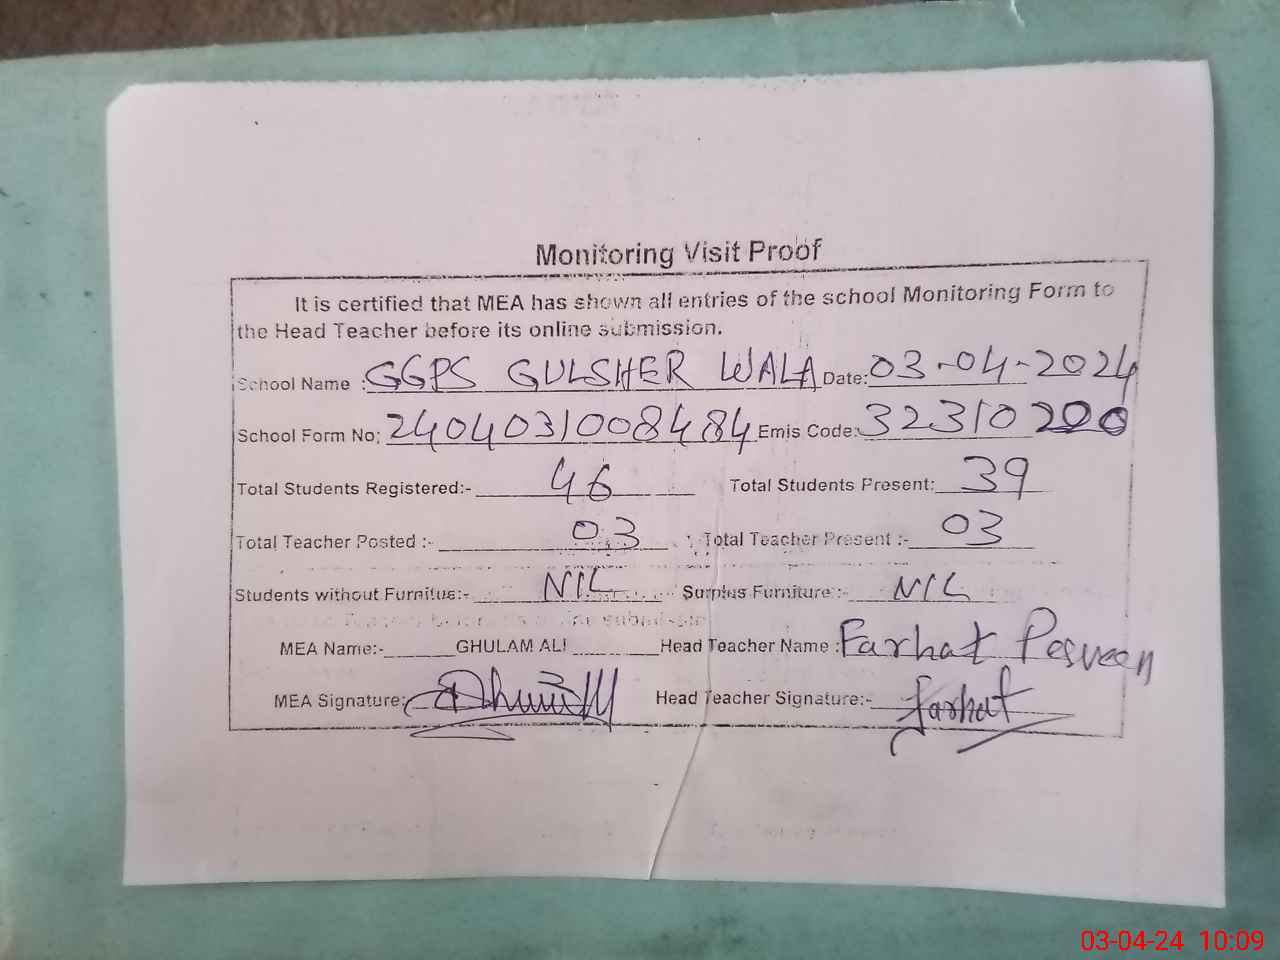 Monitoring Visit Proof
It is certified that MEA has shown all entries of the school Monitoring Form to
the Head Teacher before its online submission.
School Name :GGPS GULSHER WALA Date:03-04-2024
School Form No: 2404031008484 Emis Code:32310200
Total Students Registered:- 46 Total Students Present: 39
Total Teacher Posted :- 03 Total Teacher Present :- 03
Students without Furnitus:- NIL Surplus Furniture:- NIL
MEA Name:- GHULAM ALI Head Teacher Name :Farhat Perveen
MEA Signature: Head Teacher Signature:- Farhat
03-04-24 10:09